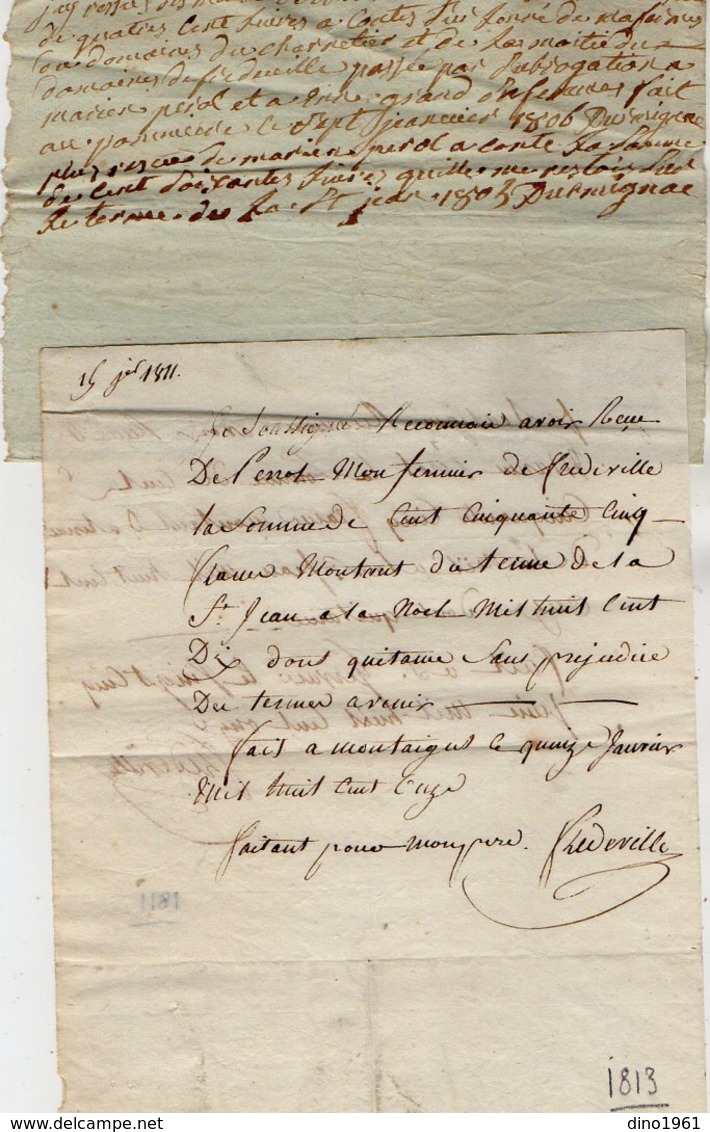 de quatres cent livres a contes du ferme de
du domaines du charretier et de la moitié du
domaines de fredeville passée par subrogation a
marien perol et a grand fait
au le sept jeanvier 1806 Durmignac
plus resçu de marien perol a conte la somme
de cent soixantes livres quille me restois sur
le terme de la St jean 1805 Durmignac
15 jer 1811.
Je Soussigné Reconnais avoir Reçu
De Perrot Mon fermier de fredeville
la Somme de Cent Cinquante Cinq
francs Montant du terme de la
St Jean a la Noel Mil huit Cent
Dix dont quitance Sans prejudice
Des termes avenir
fait a montaigut le quinze Janvier
Mil huit Cent Onze
faitant pour mon pere. Fredeville
1811
1813
http://www.delcampe.net
dino1961